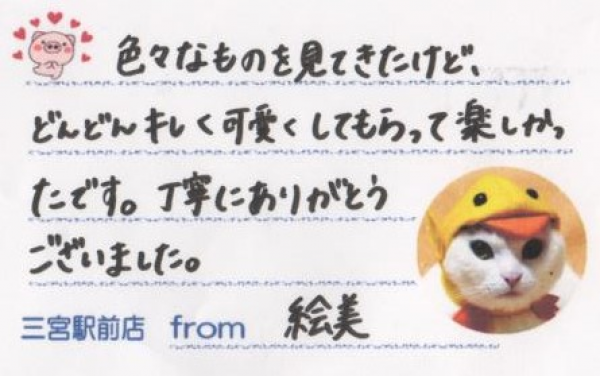 色々なものを見てきたけど、
どんどんキレく可愛くしてもらって楽しかっ
たです。丁寧にありがとう
ございました。
三宮駅前店 from 絵美